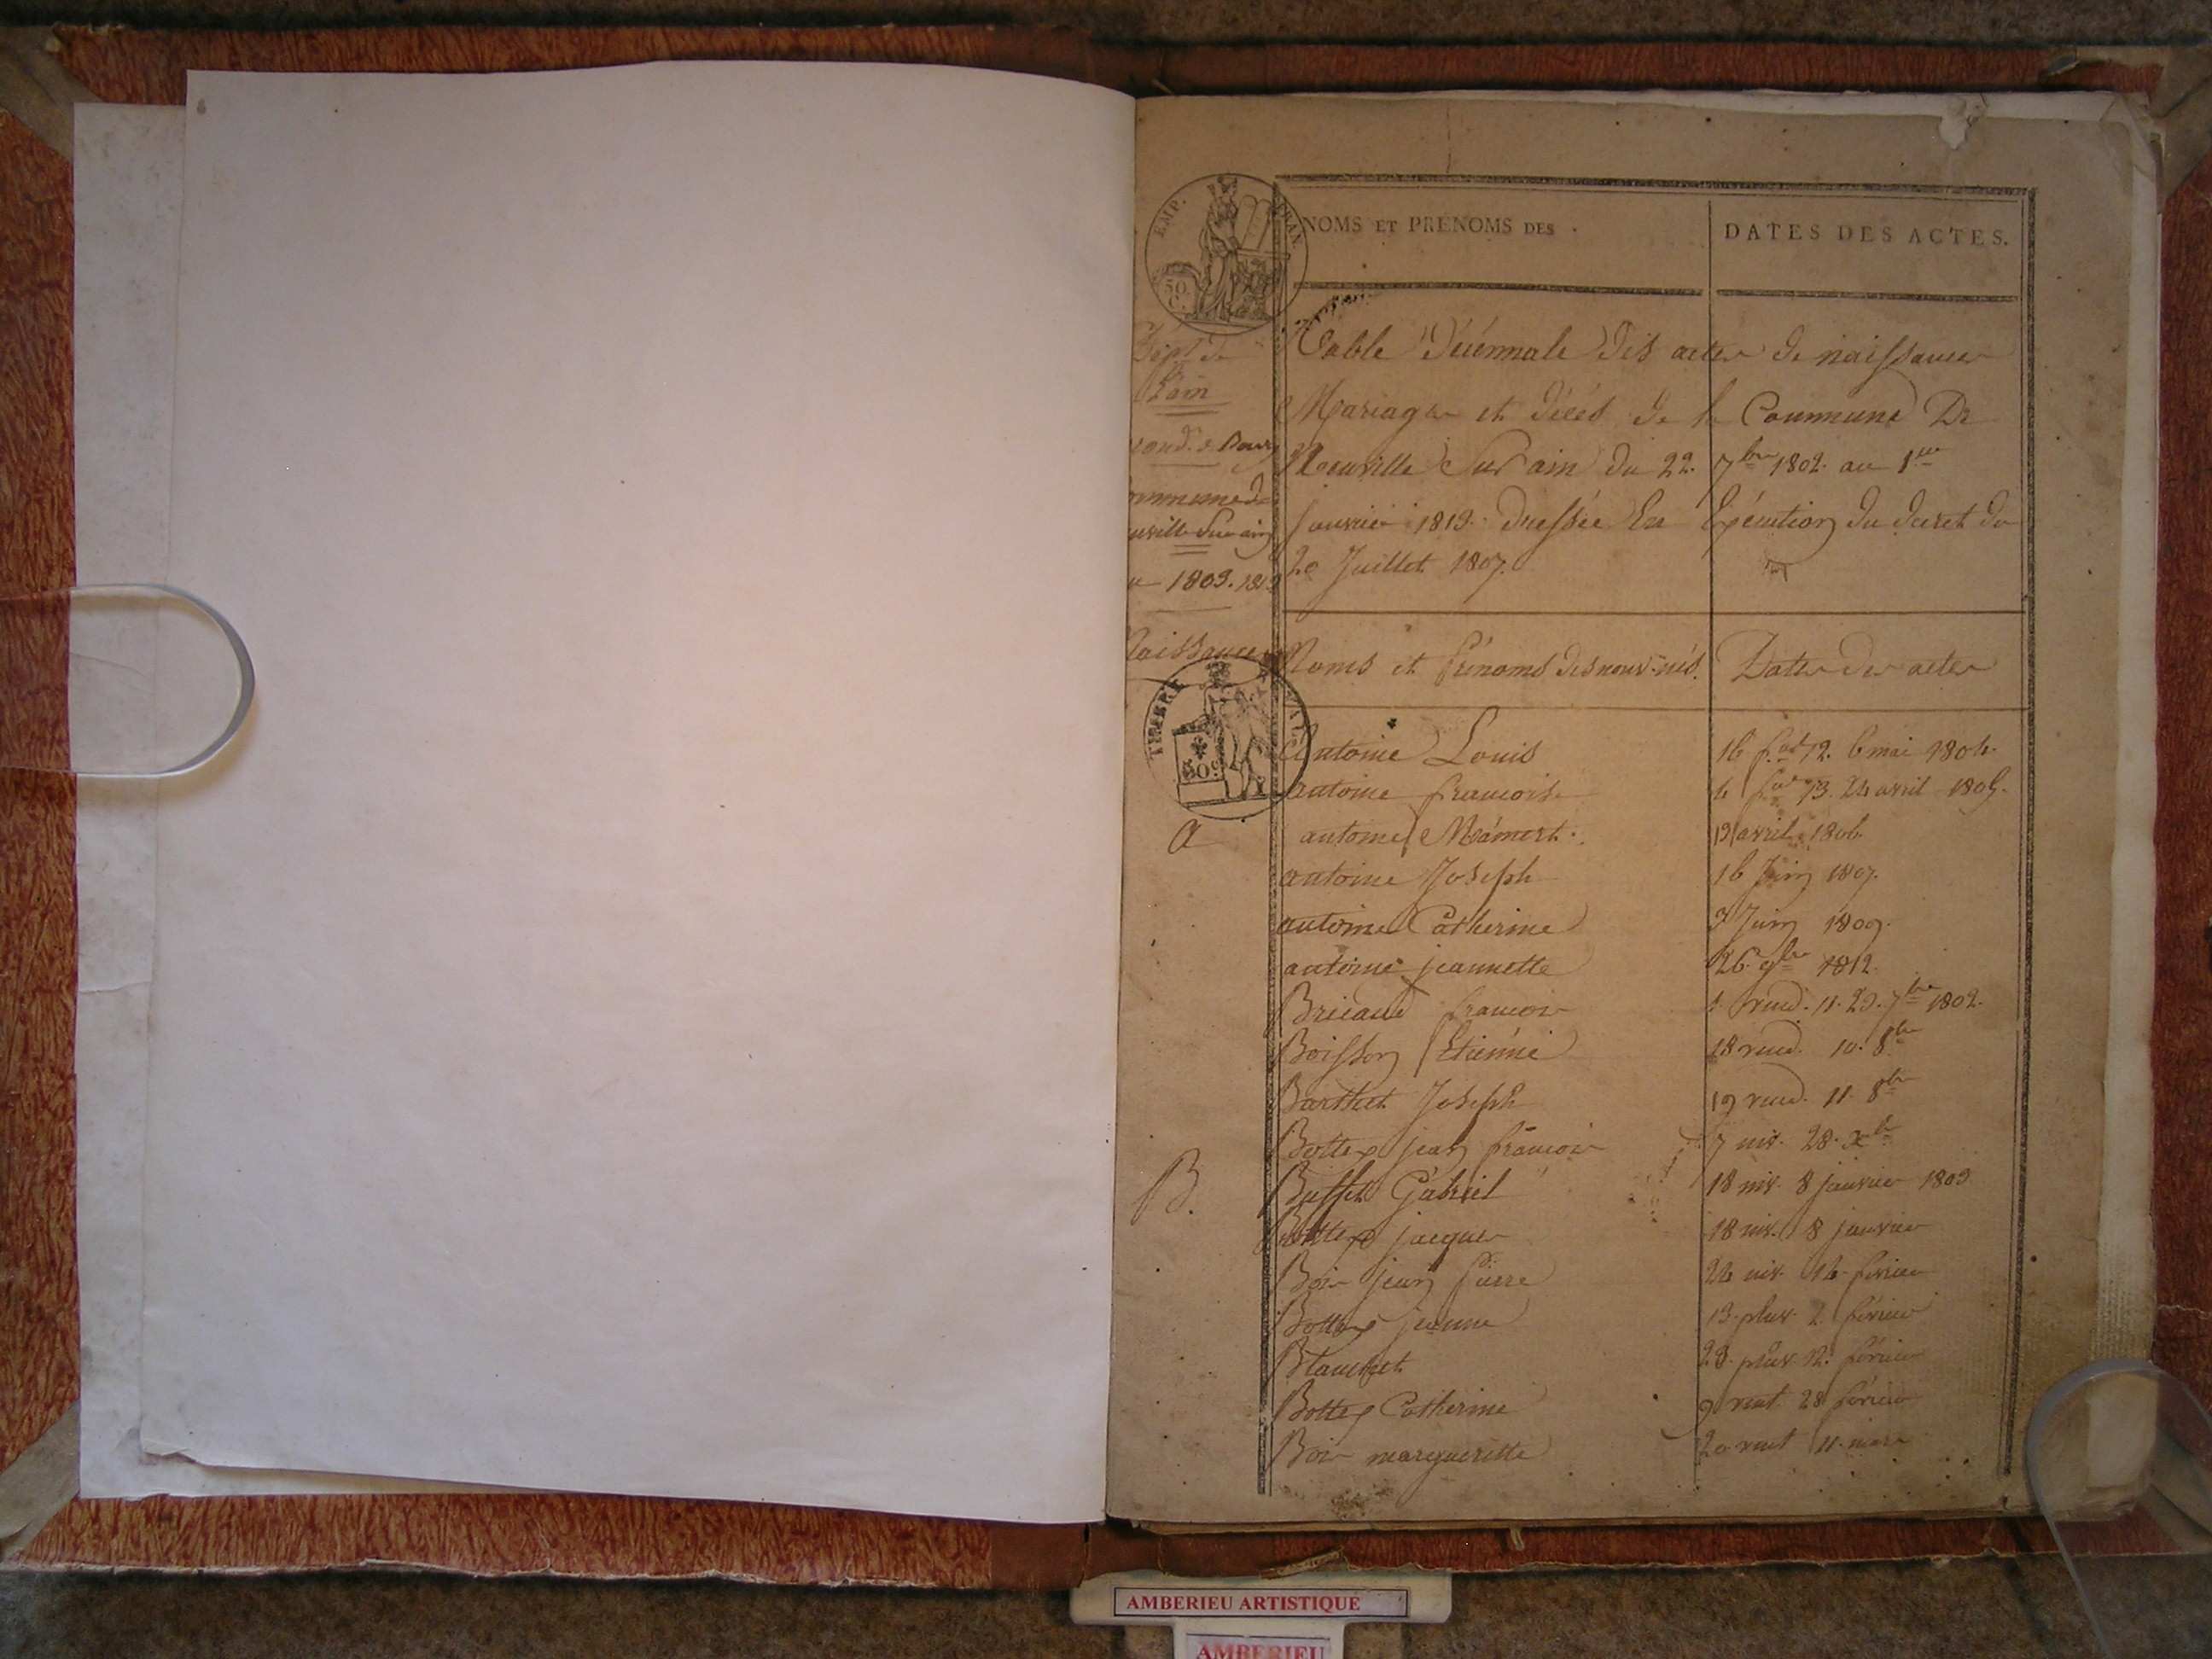 EMP. FRAN.
50 C.
NOMS ET PRÉNOMS DES
DATES DES ACTES.
Dépt de
L'ain
rond. de Bourg
ommune de
uville Sur ain
1803. 1813
Naissances
Table Décénnale des actes de naissances
Mariages et décès de la Commune De
Neuville Sur ain du 22. 7bre 1802. au 1er
Janvier 1813. dressée En Exécution du decret du
20 Juillet 1807.
Noms et Prénoms des nouv. nés. Dates des actes
TIMBRE
50 c
Antoine Louis 16 f.al 12. 6 mai 1804.
antoine francoise 4 f.al 13. 24 avril 1805.
a
antoine Mámert. 13 avril 1806.
antoine Joseph 16 Juin 1807.
antoine Catherine 3 Juin 1809.
antoine jeannette 26. 9bre 1812.
Bricaud francois 1 vend. 11. 23. 7bre 1802.
Boisson Etiénne 18 vend. 10. 8bre
Barthet Joseph 19 vend. 11. 8bre
Bottex jean francois 7 niv. 28. Xbre
B.
Buffet Gabriel 18 niv. 8 janvier 1803
Bottex jacques 18 niv. 8 janvier
Bois jean Pierre 24 niv. 14 février
Bottex jeanne 13 pluv. 2 février
Blanchet 23. pluv. 12. février
Bottex Catherine 9 vent. 28 février
Bois margueritte 20 vent 11. mars
AMBERIEU ARTISTIQUE
AMBERIEU